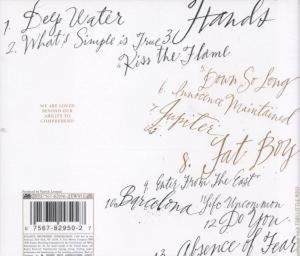 1. Deep Water
Hands
2. What's Simple is True 3.
Kiss the Flame
5. Down So Long
6. Innocence Maintained
7. Jupiter
8. Fat Boy
WE ARE LOVED
BEYOND OUR
ABILITY TO
COMPREHEND
9. Enter From The East
10. Barcelona 11. Life Uncommon
12. Do You
13. Absence of Fear
Produced by Patrick Leonard
0 7567-82950-2 7